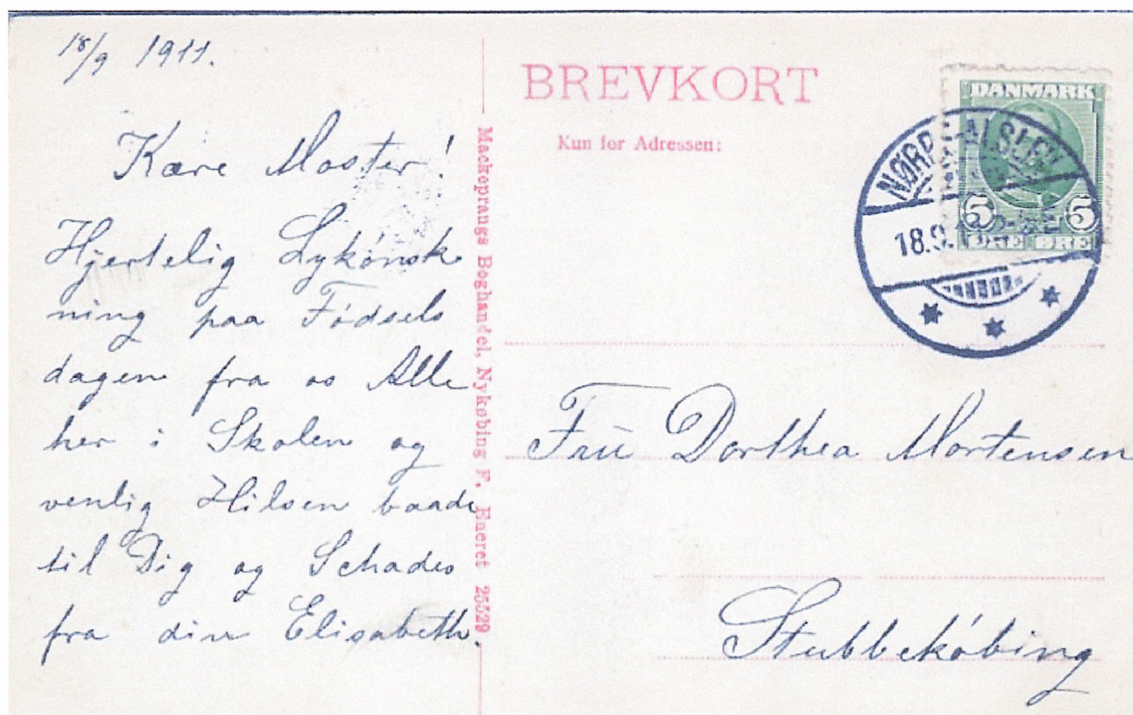 18/9 1911.
Kære Moster!
Hjertelig Lykønsk
ning paa Fødsels
dagen fra os Alle
her i Skolen og
venlig Hilsen baade
til Dig og Schades
fra din Elisabeth.
Mackeprangs Boghandel, Nykøbing F. Eneret 25529
BREVKORT
Kun for Adressen:
DANMARK
5 5
ØRE ØRE
NØRRE-ALSLEV
18.9.
Fru Dorthea Mortensen
Stubbekøbing